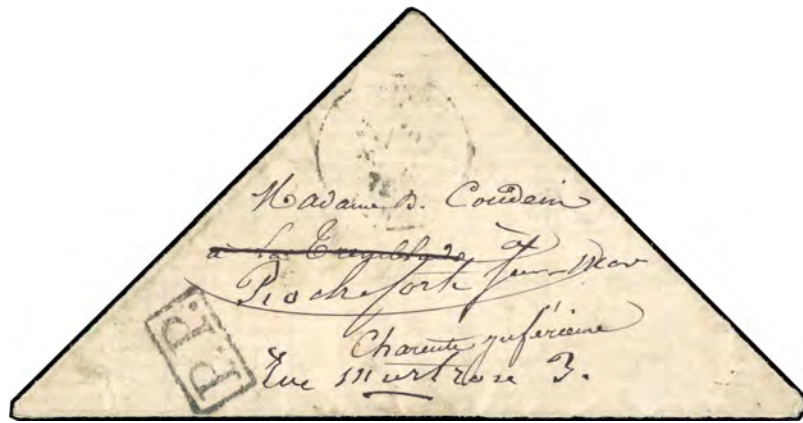 Madame B. Coudein
à la Tremblade à
Rochefort sur Mer
Charente inférieure
Rue 3.
P.P.